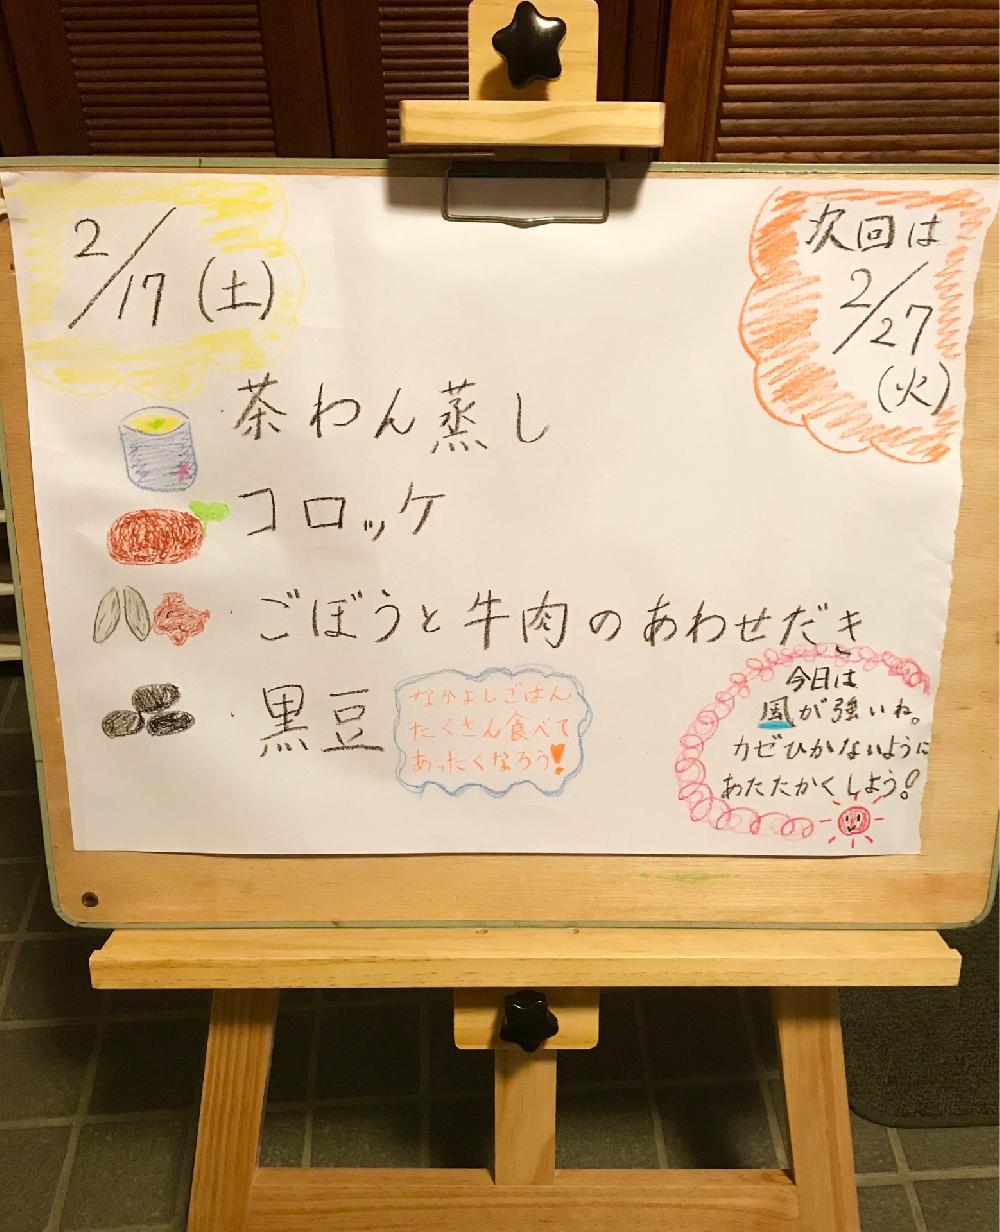 2/17(土)
次回は
2/27
(火)
茶わん蒸し
コロッケ
ごぼうと牛肉のあわせだき
黒豆
なかよしごはん
たくさん食べて
あったくなろう!
今日は
風が強いね。
カゼひかないように
あたたかくしよう!